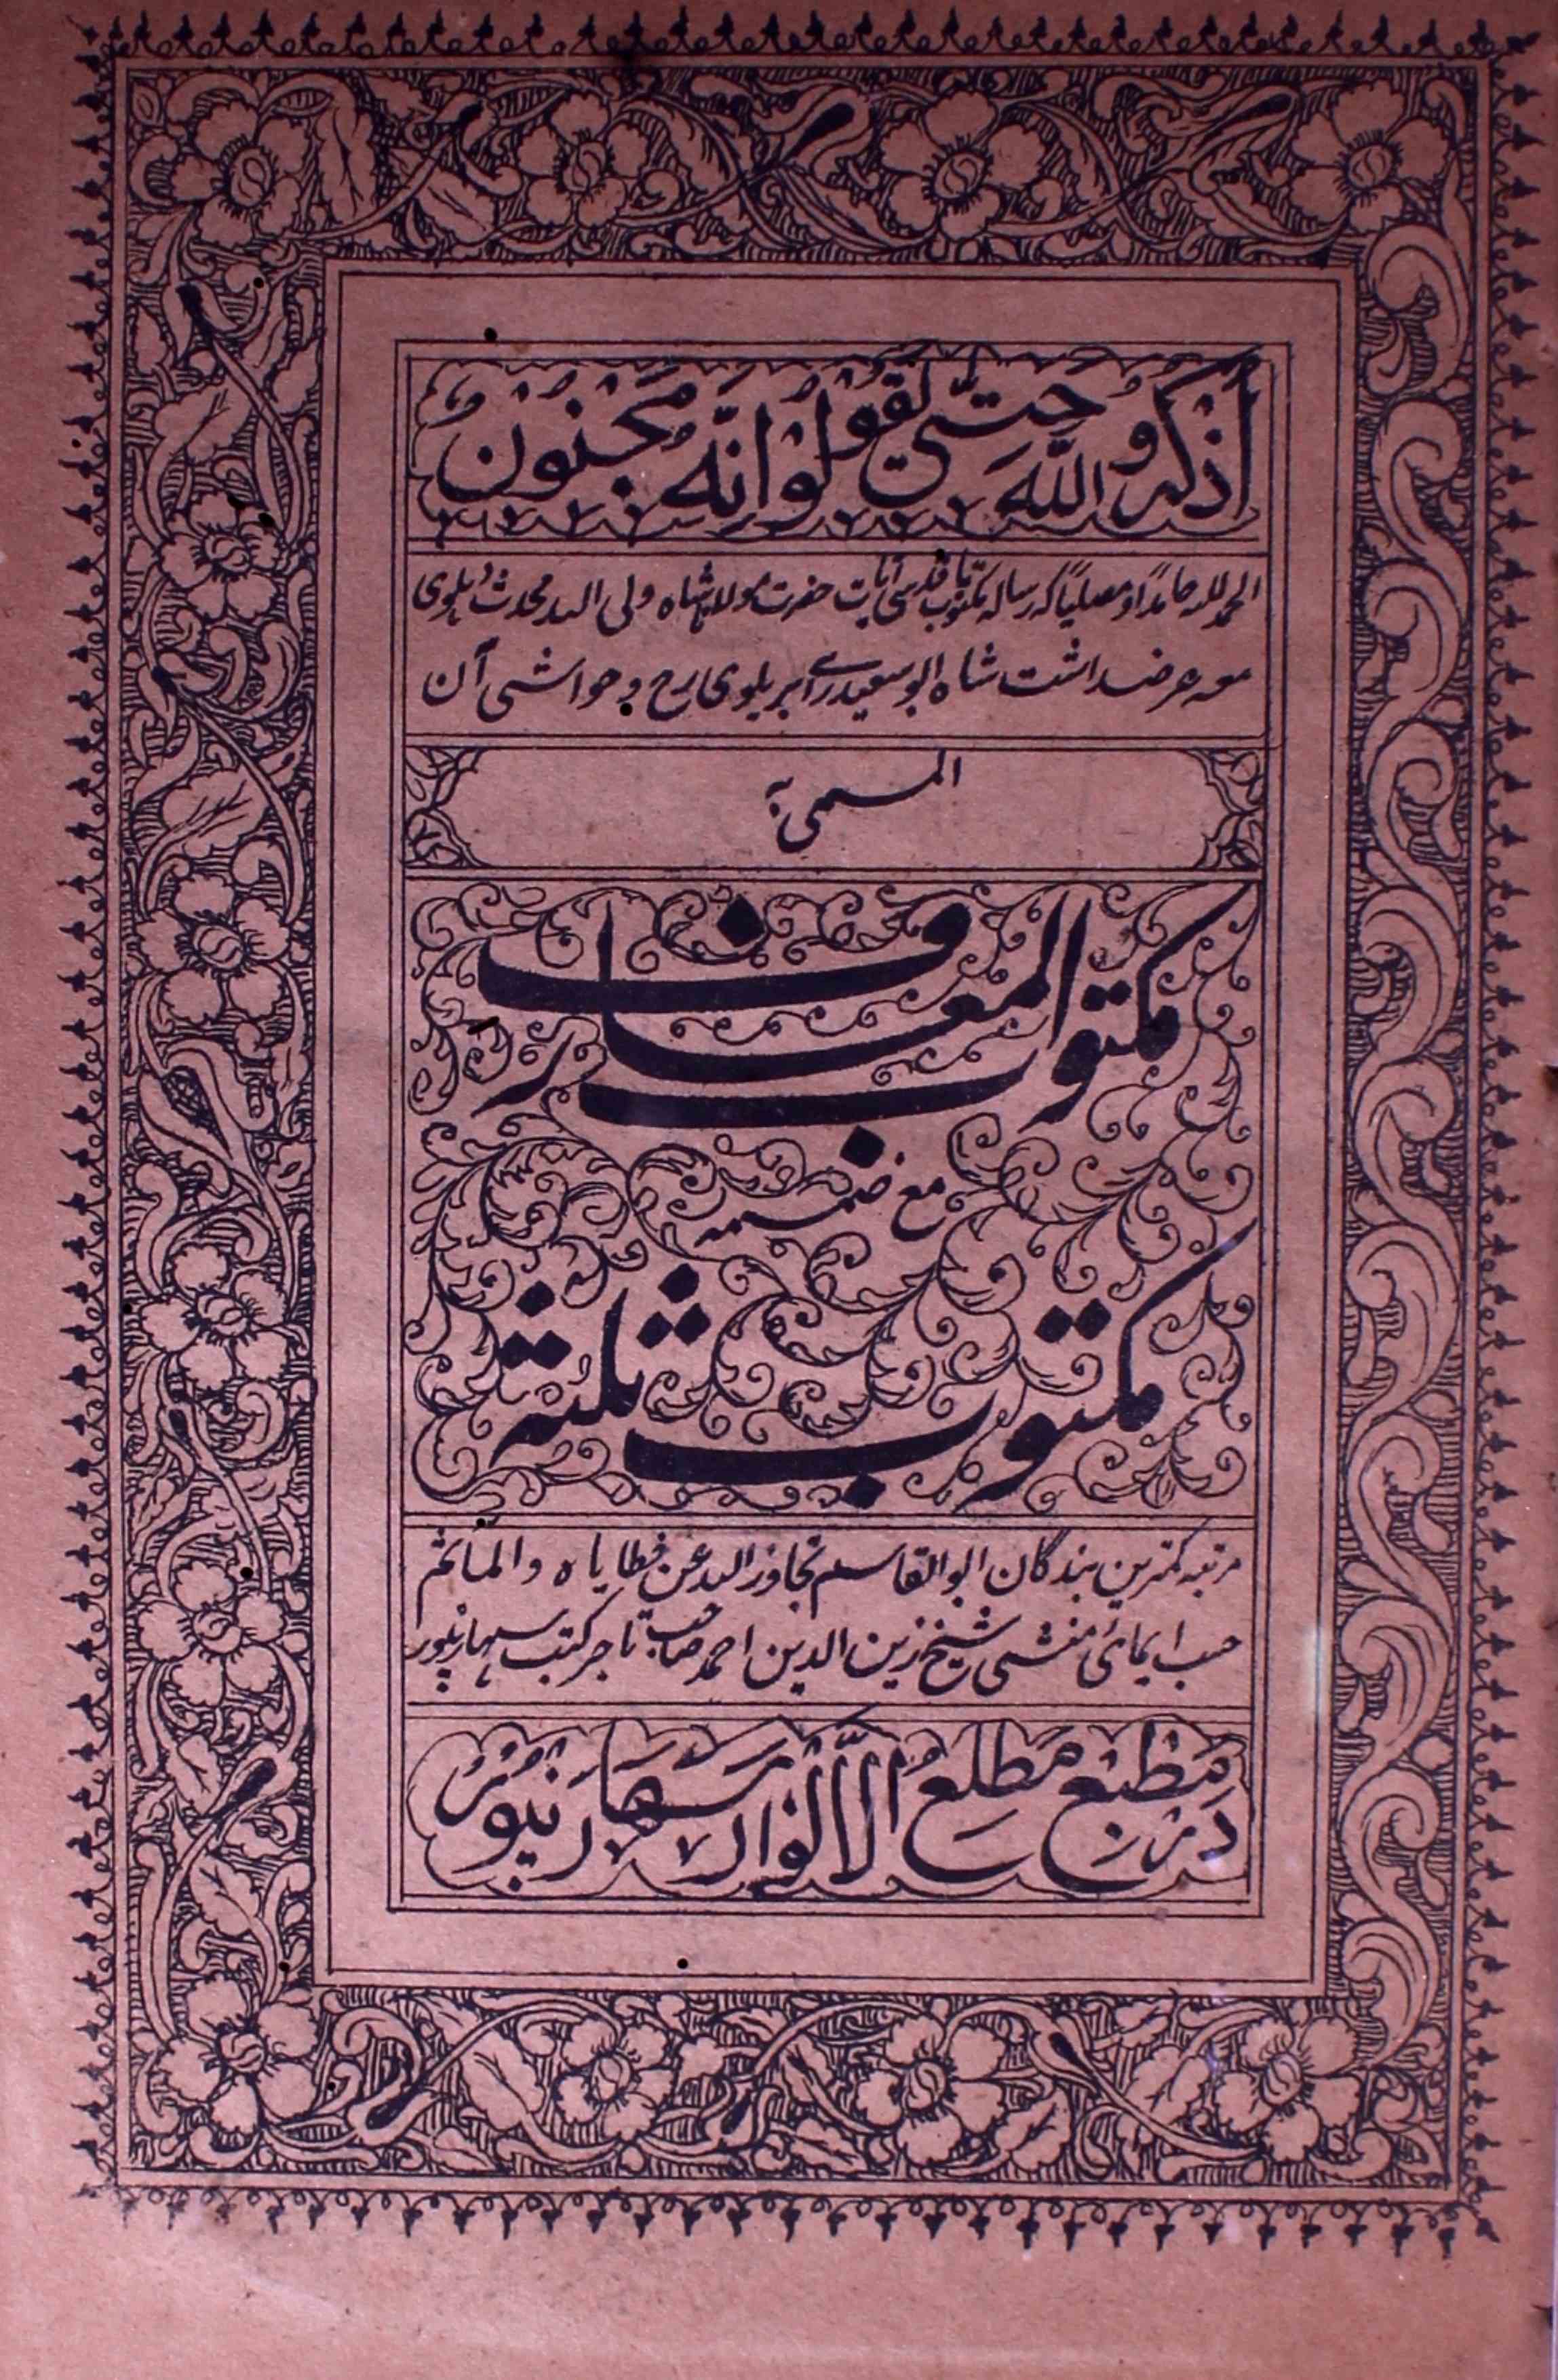 اذكروا اللّٰهَ حتّى يقولوا انّه مجنون
الحمد للہ حامدًا و مصلیًا کہ رسالہ مکتوبات قدسی آیات حضرت مولانا شاہ ولی اللہ محدث دہلوی
معہ عرضداشت شاہ ابو سعید رائے بریلوی رح و حواشی آن
المسمی بہ
مکتوب المعارف
مع ضمیمہ
مکتوب ثلثہ
مرتبہ کمترین بندگان ابو القاسم تجاوز اللہ عن خطایاہ و المآثم
حسب ایمائی منشی شیخ زین الدین احمد صاحب تاجر کتب سہارنپور
در مطبع مطلع الانوار سهارنپور